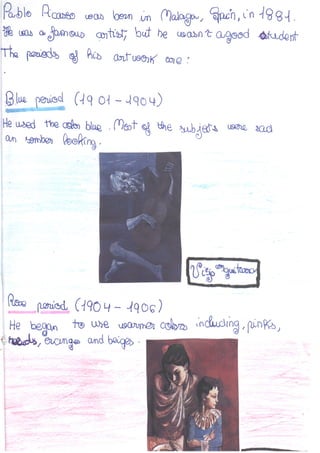 Pablo Picasso was born in Malaga, Spain, in 1881.
He was a famous artist, but he wasn't a good student
The periods of his artwork are:
Blue period (1901-1904)
He used the color blue. Most of the subjects were sad
an somber looking.
Viejo guitarra
Rose period (1904-1906)
He began to use warmer colors including, pinks,
reds, orange and beiges.